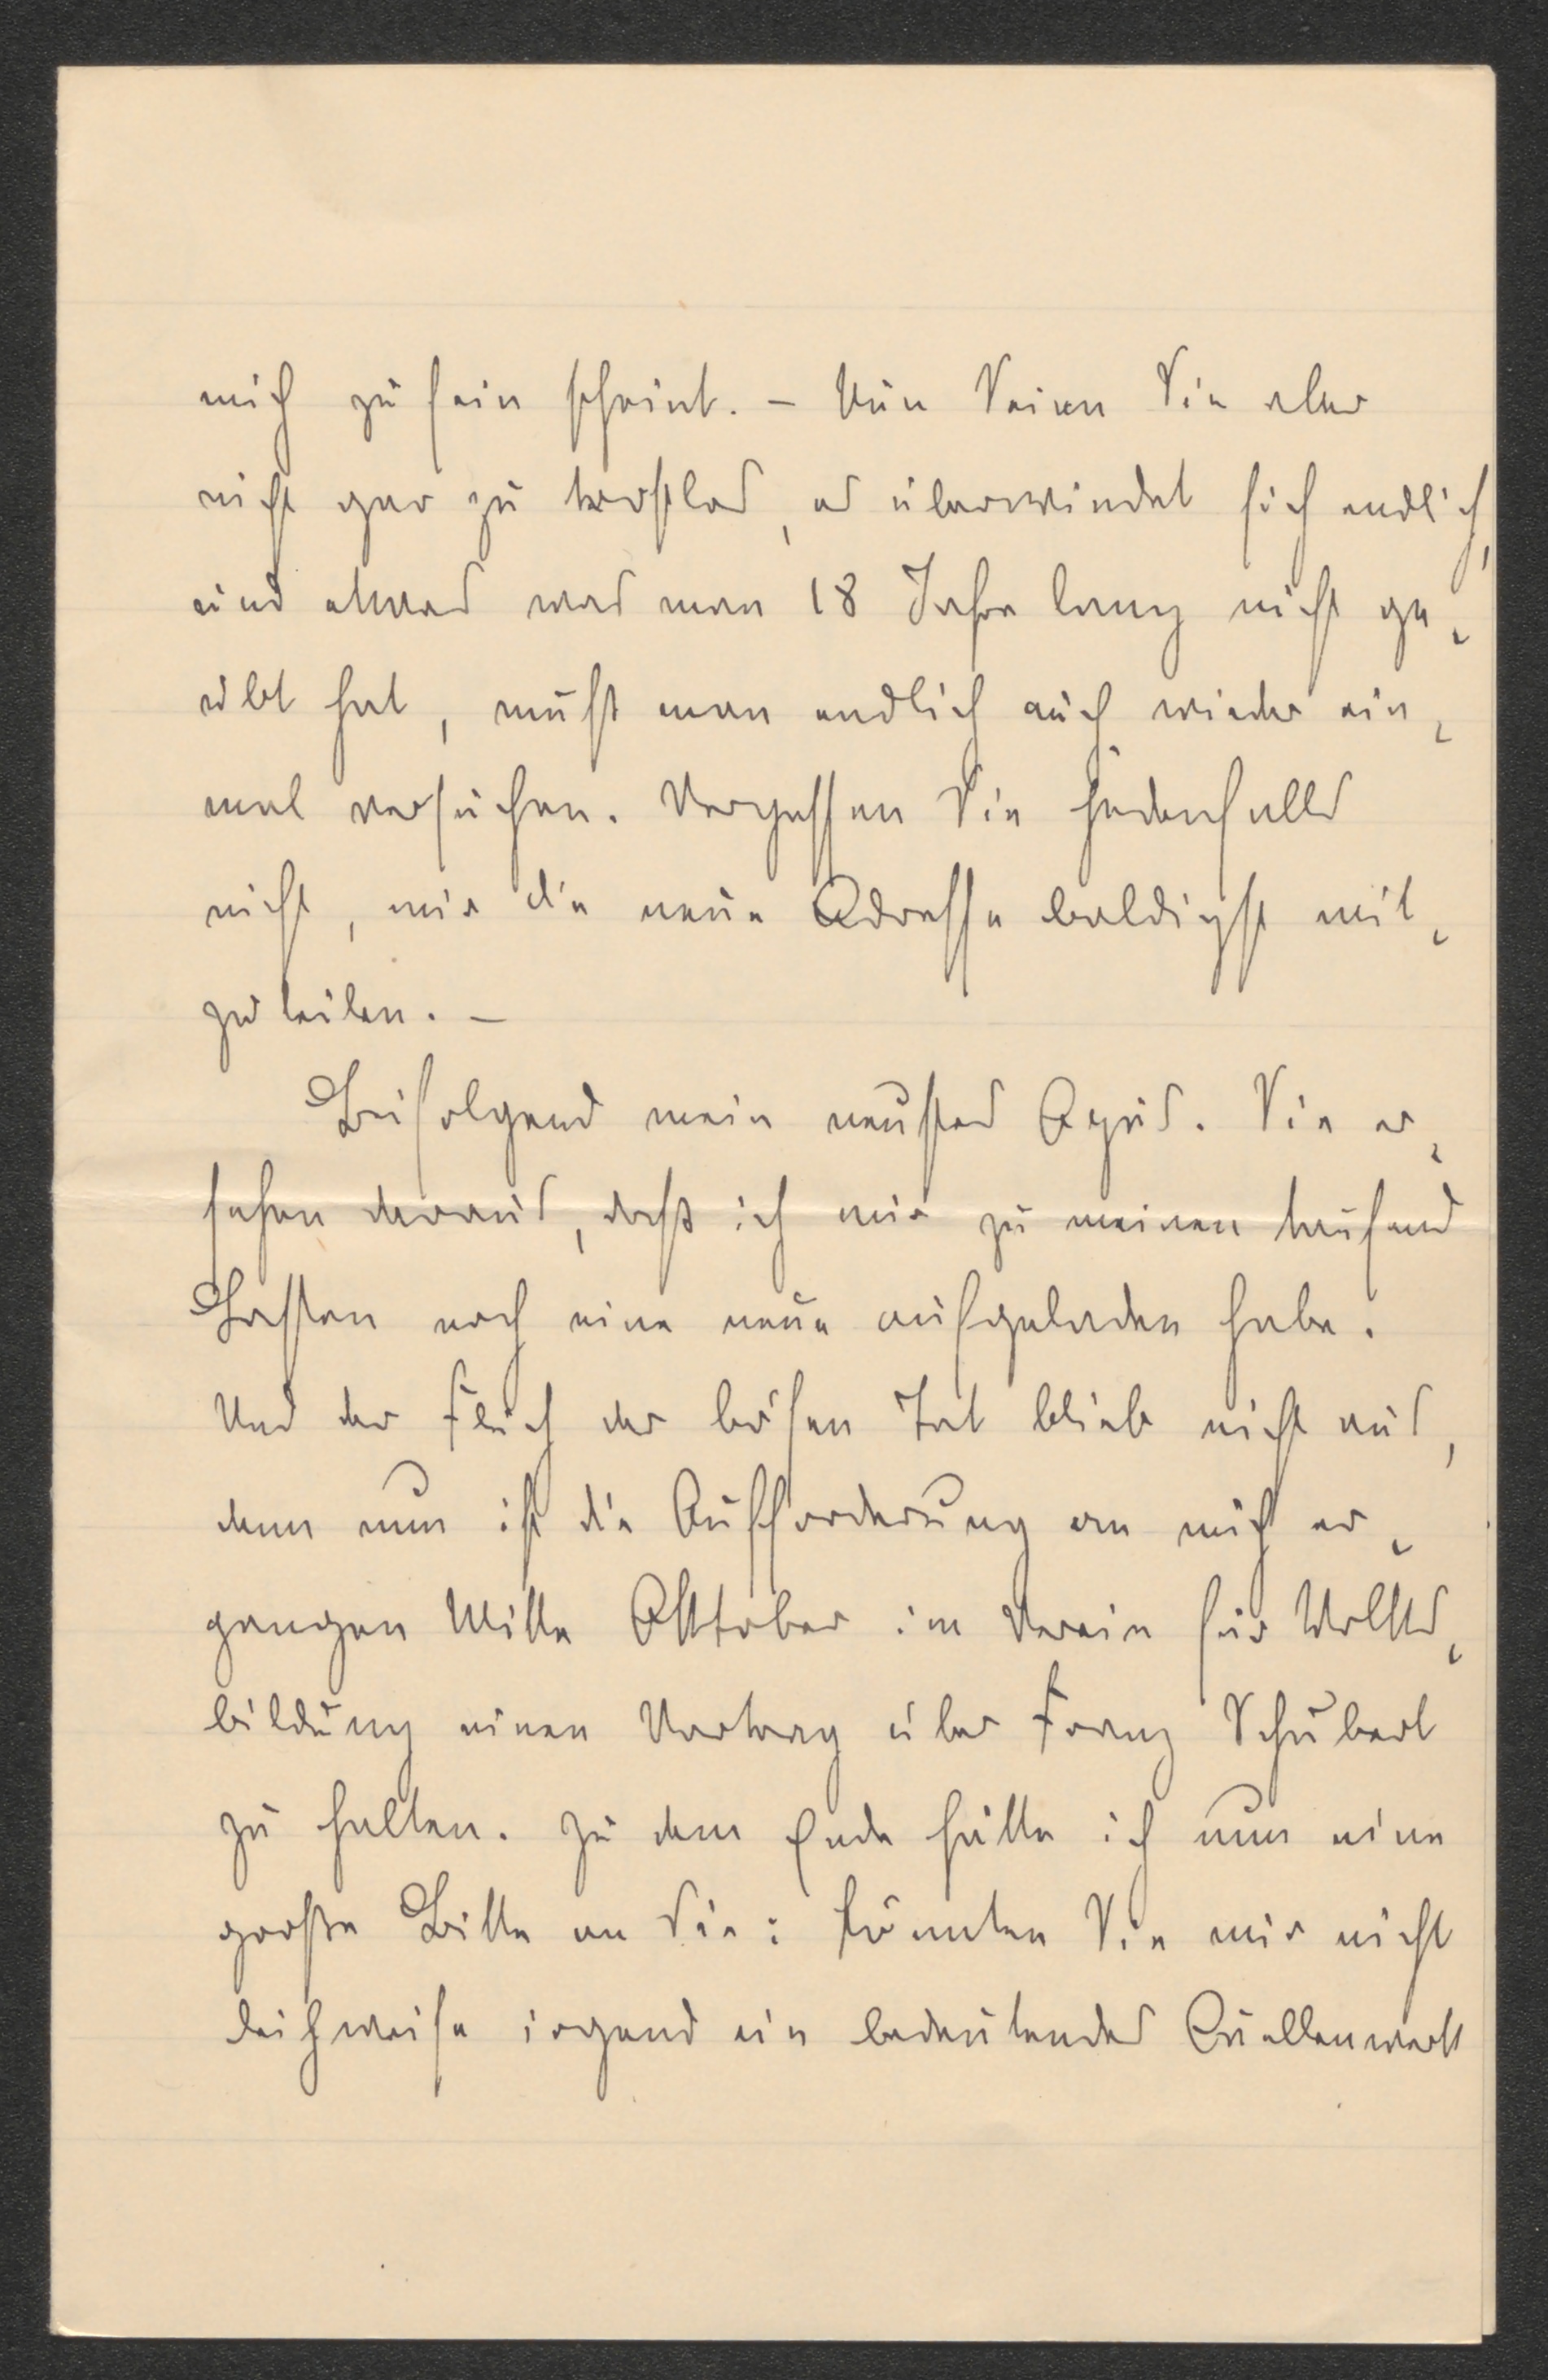 mich zu sein scheint. – Nun Seien Sie aber
nicht gar zu trostlos, es überwindet sich endlich,
und etwas was man 18 Jahre lang nicht ge-
übt hat, muß man endlich auch wieder ein-
mal versuchen. Vergessen Sie jedenfalls
nicht, mir die neue Adresse baldigst mit-
zuteilen. –
Beifolgend mein neustes Opus. Sie er-
sehen daraus, daß ich mir zu meinen tausend
Lasten noch eine neue aufgeladen habe.
Und der Fluch der bösen Tat blieb nicht aus,
denn nun ist die Aufforderung an mich er-
gangen Mitte Oktober im Verein für Volks-
bildung einen Vortrag über Franz Schubert
zu halten. Zu dem Ende hätte ich nun eine
große Bitte an Sie: könnten Sie mir nicht
leihweise irgend ein bedeutendes Quellenwerk